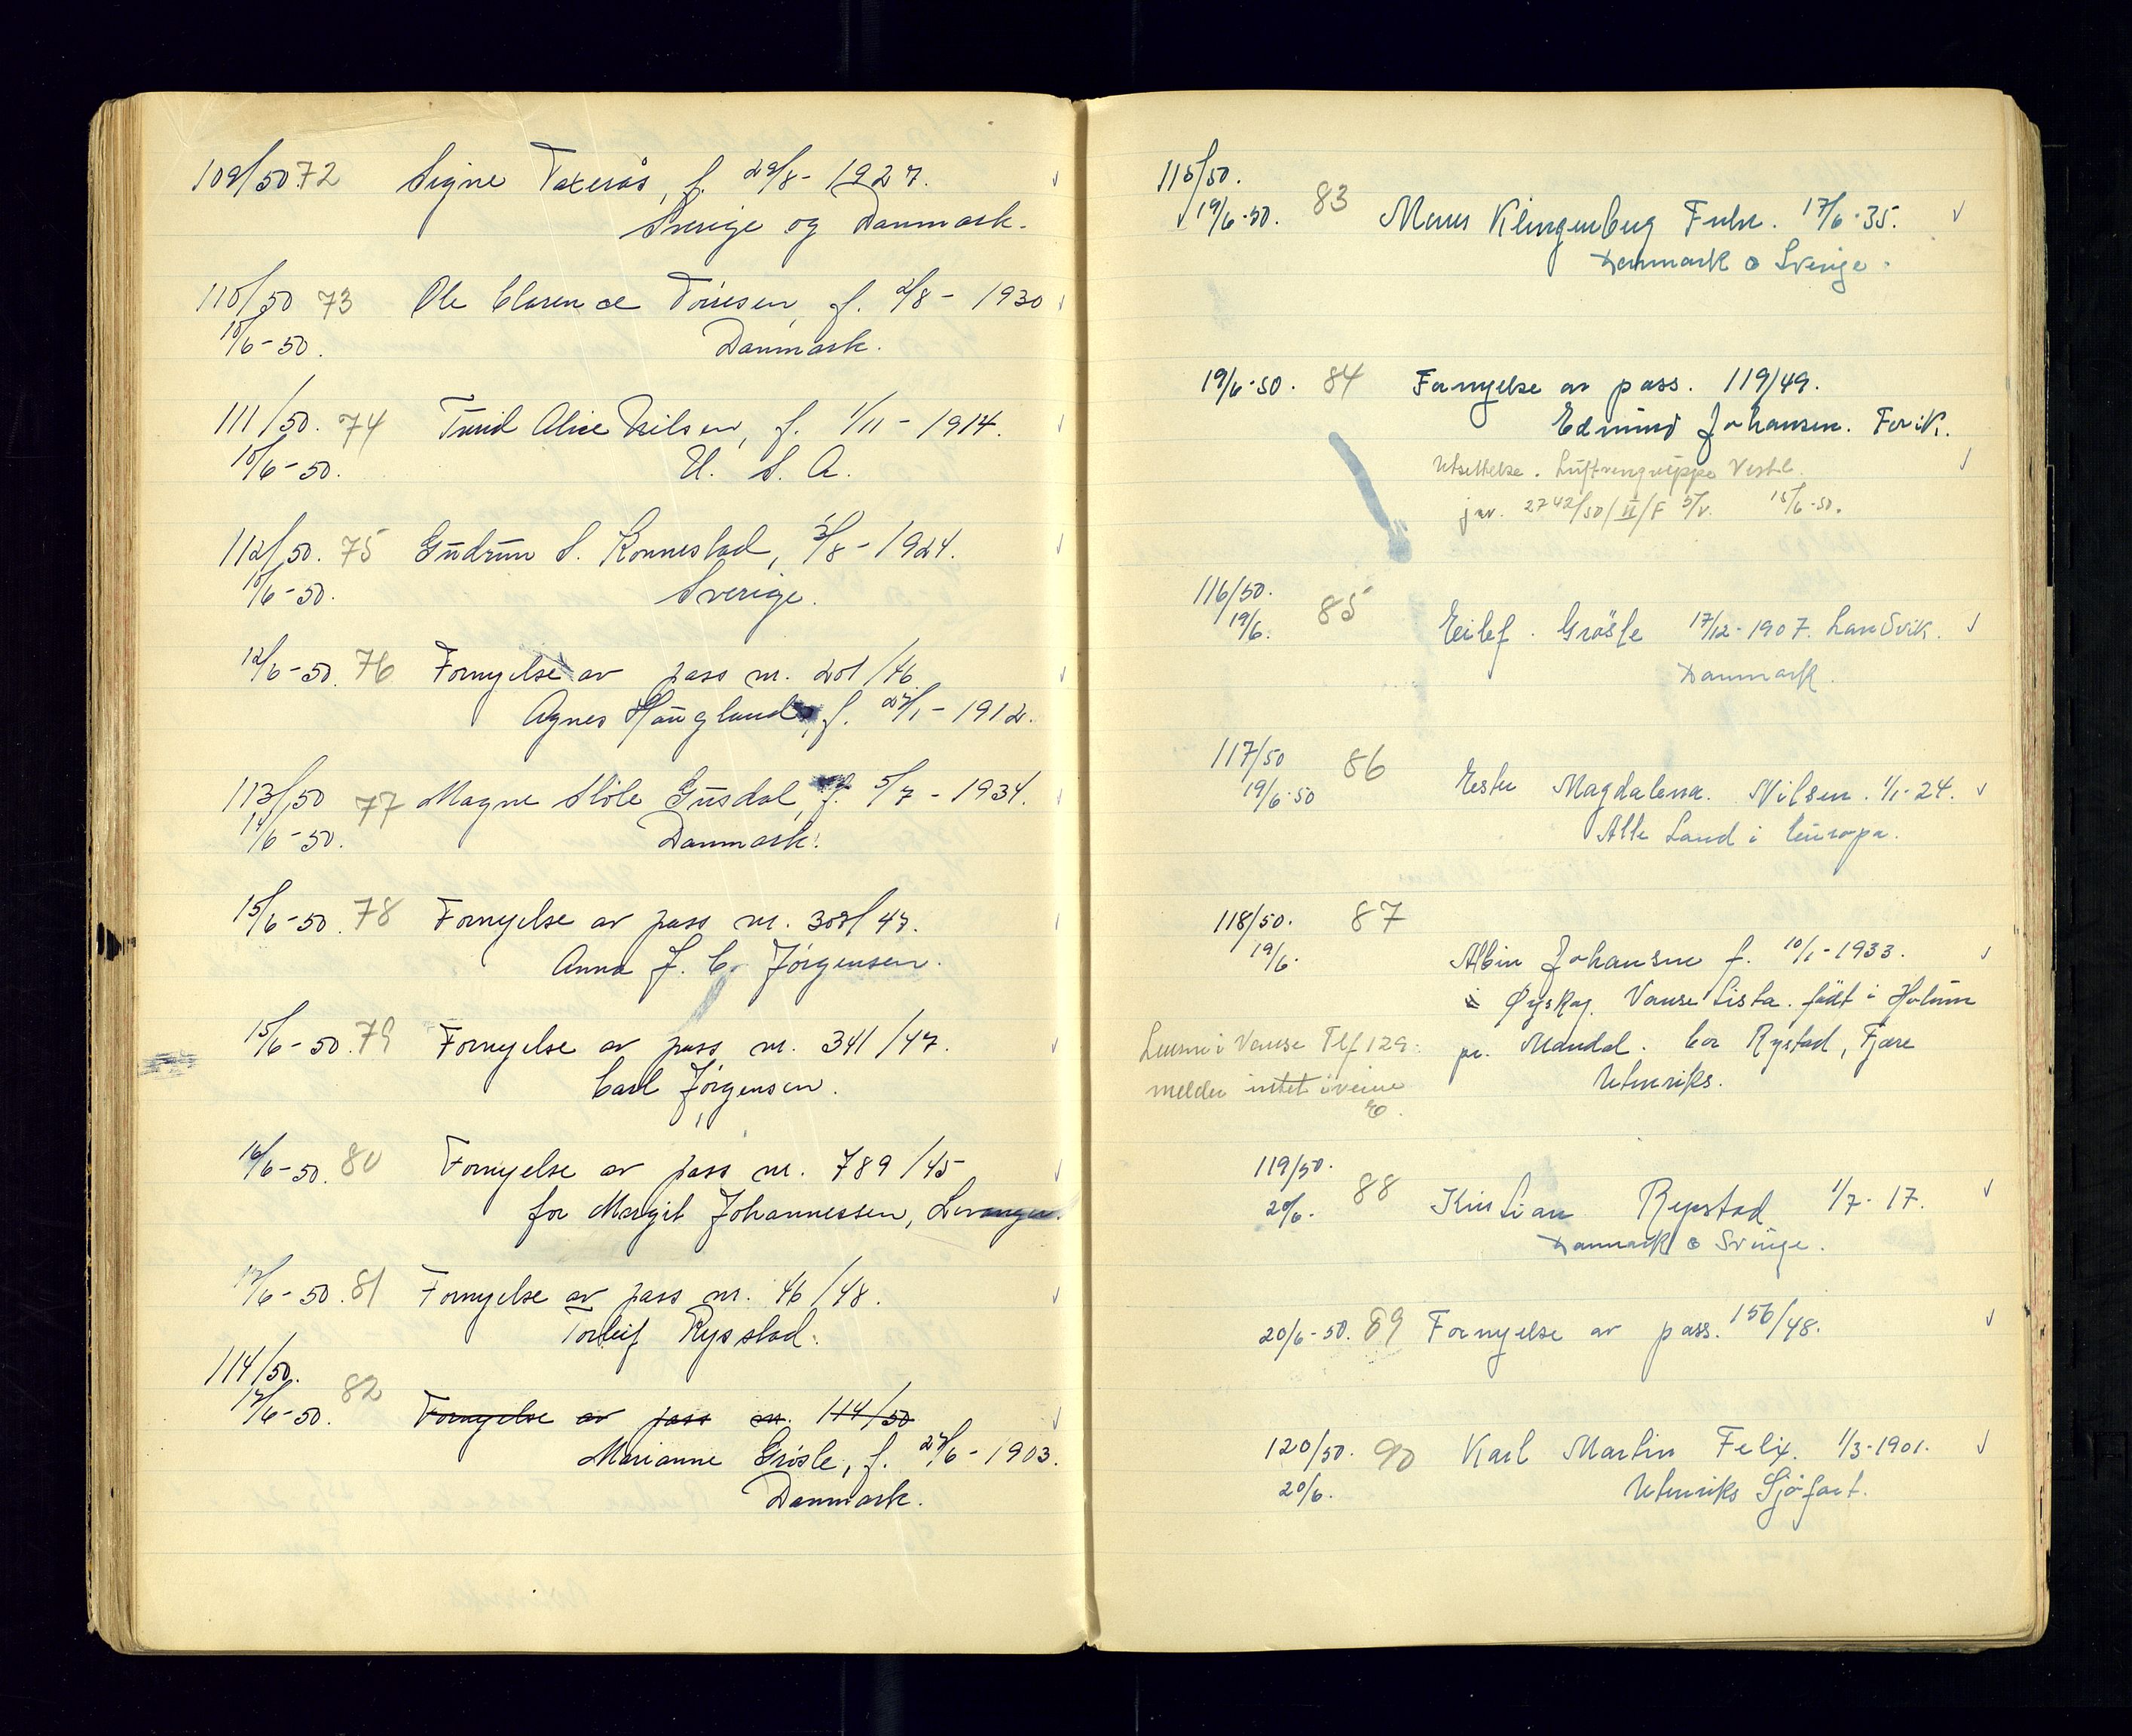 109/50. 72 Signe Taxerås, f. 29/8 - 1927.
Sverige og Danmark.
110/50 73 Ole Clarence Terresen, f. 2/8 - 1930
10/6 - 50. Danmark.
111/50. 74 Turid Alice Nilsen, f. 1/11 - 1914.
10/6 - 50. U. S. A.
112/50. 75 Gudrun S. Konnestad, 3/8 - 1924.
10/6 - 50. Sverige.
12/6 - 50. 76 Fornyelse av pass nr. 201/46
Agnes Haugland, f. 27/1 - 1912.
113/50 77 Magne Ståle Gusdal, f. 5/7 - 1934.
14/6 - 50. Danmark.
15/6 - 50. 78 Fornyelse av pass nr. 308/47.
Anna J. C. Jørgensen.
15/6 - 50. 79 Fornyelse av pass nr. 341/47.
Carl Jørgensen.
16/6 - 50. 80 Fornyelse av pass nr. 789/45
for Margit Johannessen, Levanger.
17/6 - 50. 81 Fornyelse av pass nr. 46/48.
Torleif Rysstad.
114/50.
17/6 - 50. 82 Fornyelse av pass nr. 114/50
Marianne Grösle, f. 27/6 - 1903.
Danmark.
115/50.
19/6 - 50. 83 Klingenberg 17/6 - 35.
Danmark o Sverige.
19/6 - 50. 84 Fornyelse av pass. 119/49.
Edmund Johansen. Fevik.
Utsettelse. Luftverngruppe Vestl.
jnr. 2742/50/II/F 15/6 - 50.
116/50.
19/6. 85 Eilef. Grösle 17/12 - 1907. Landvik.
Danmark.
117/50 86
19/6 - 50 Ester Magdalena. Nilsen. 1/1 - 24.
Alle Land i Europa.
118/50. 87
19/6. Albin Johansen f. 10/1 - 1933.
i Øyskog. Vanse Lista. født i Holum
pr. Mandal. Co Rystad, Fjære
Utenriks.
Lensm i Vanse Tlf 129.
melder intet iveien
119/50.
20/6. 88 Kristian Rysstad 1/7 - 17.
Danmark o Sverige.
20/6 - 50. 89 Fornyelse av pass. 156/48.
120/50. 90 Karl Martin Felix. 1/3 - 1901.
20/6. Utenriks Sjöfart.